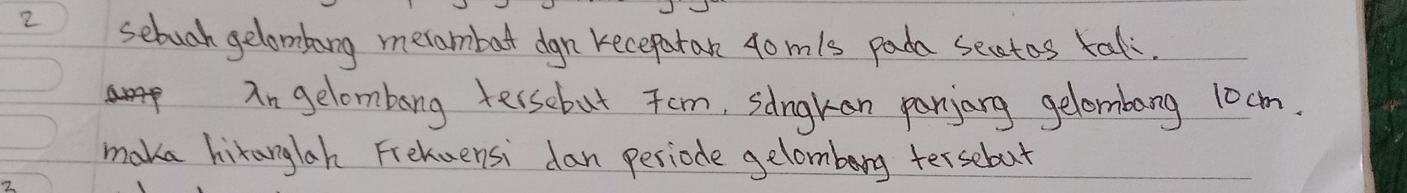 2 sebuah gelombang merambat dgn kecepatan 40 m/s pada seutas tali.
gelombang tersebut 7cm, sdngkan panjang gelombang 10 cm.
maka hitunglah Frekuensi dan periode gelombang tersebut
3